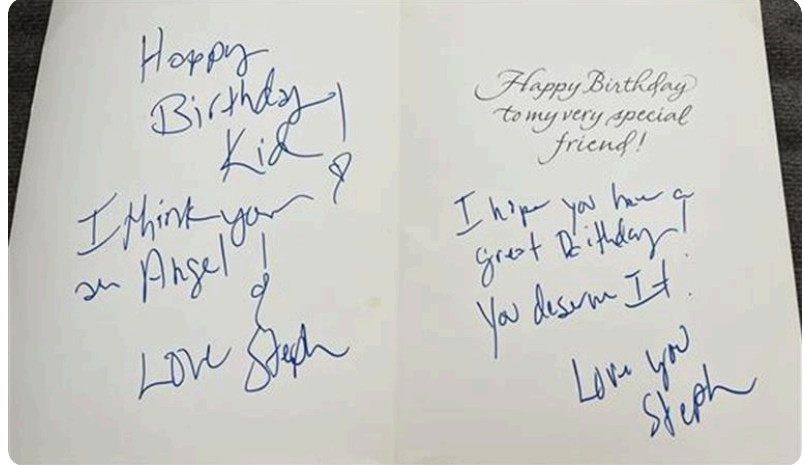 Happy
Birthday!
Kid
I think your
an Angel!
Love Steph
Happy Birthday
to my very special
friend!
I hope you have a
great Birthday!
You deserve It.
Love you
Steph